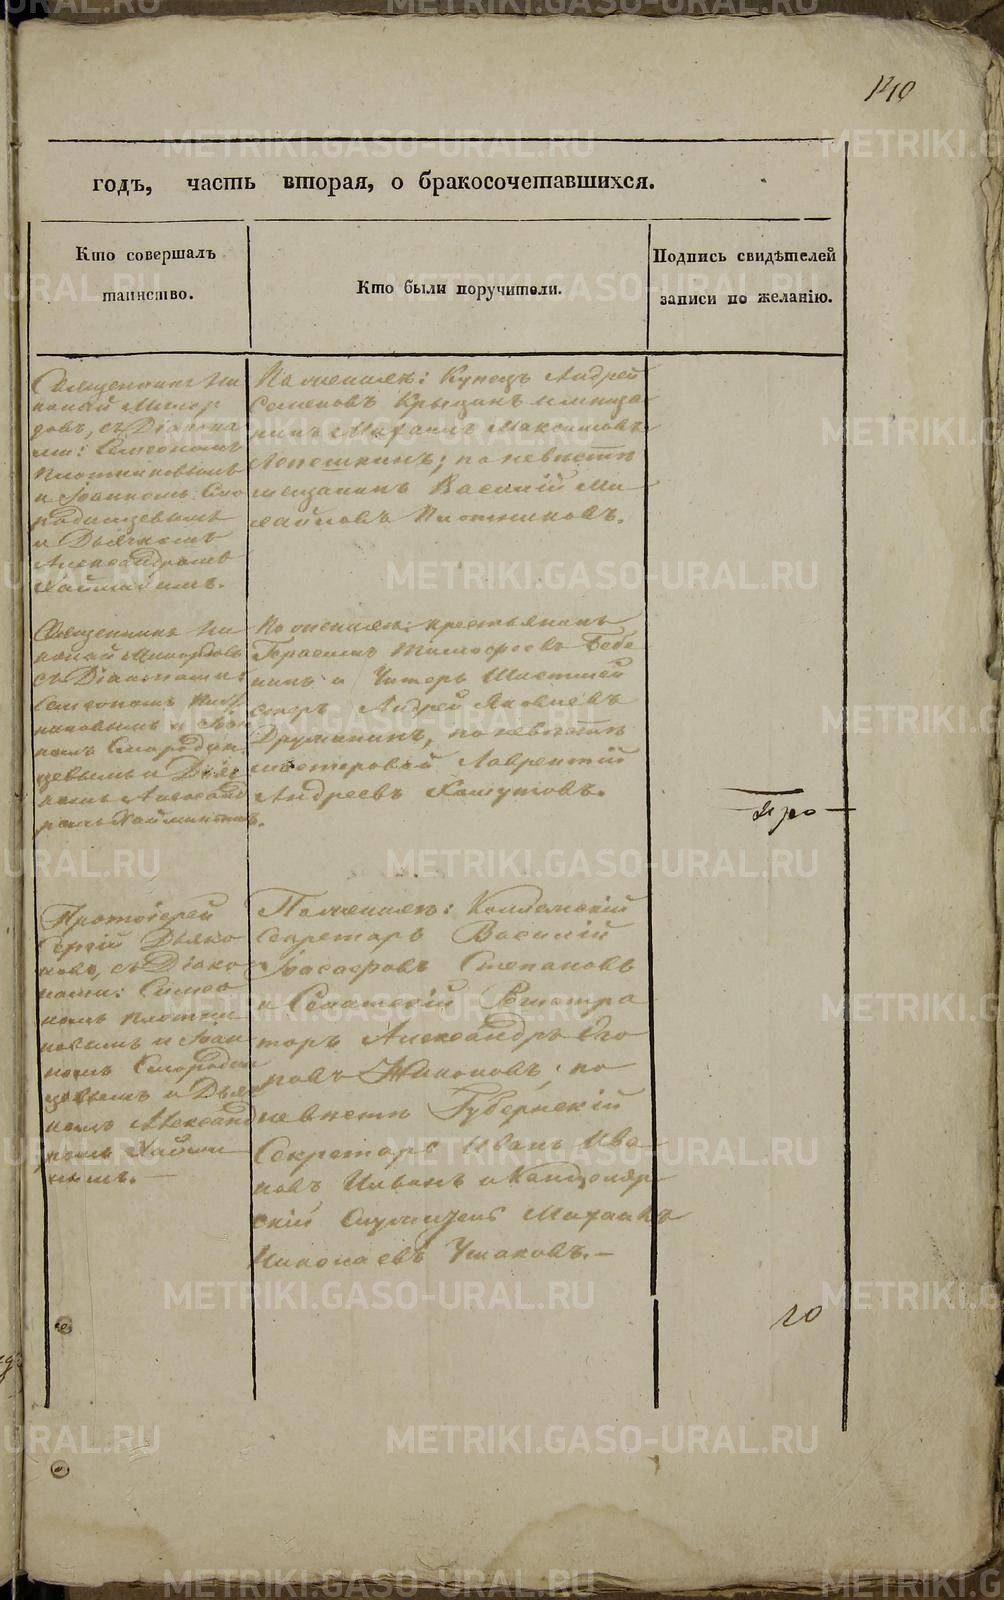 140
годъ, часть вторая, о бракосочетавшихся.
Кто совершалъ
таинство.
Кто были поручители.
Подпись свидѣтелей
записи по желанію.
Священникъ Ни
колай
довъ, съ Діакона
ми: Симеономъ
Плотниковымъ
и Іоанномъ Смо
родинцевымъ
и Дьячкомъ
Александромъ
По женихѣ: Купецъ Андрей
Семеновъ
Михаилъ Максимовъ
Лепешкинъ; по невѣстѣ
мещанинъ Василій Ми
хайловъ Плотниковъ.
Священникъ Ни
колай
съ Діаконами:
Симеономъ Плот
никовымъ и Іоан
номъ Смородин
цевымъ и Дьяч
комъ Александ
По женихѣ: крестьянинъ
Герасимъ Тимофеевъ
и Унтеръ Шихтмей
стеръ Андрей Яковлевъ
Дружининъ, по невѣстѣ
мастеровой Лаврентій
Андреевъ Хомутовъ.
Про
Протоіерей
Сергій Дьяко
новъ, съ Діако
нами: Симео
номъ Плотни
ковымъ и Іоан
номъ Смородин
цевымъ и Дьяч
комъ Александ
ромъ
По женихѣ: Коллежскій
Секретарь Василій
Степановъ
и Сенатскій Регистра
торъ Александръ Его
ровъ по
невѣстѣ Губернскій
Секретарь Иванъ Ива
новъ Ильинъ и Канцеляр
скій Служитель Михаилъ
Николаевъ Ушаковъ.—
20
METRIKI.GASO-URAL.RU